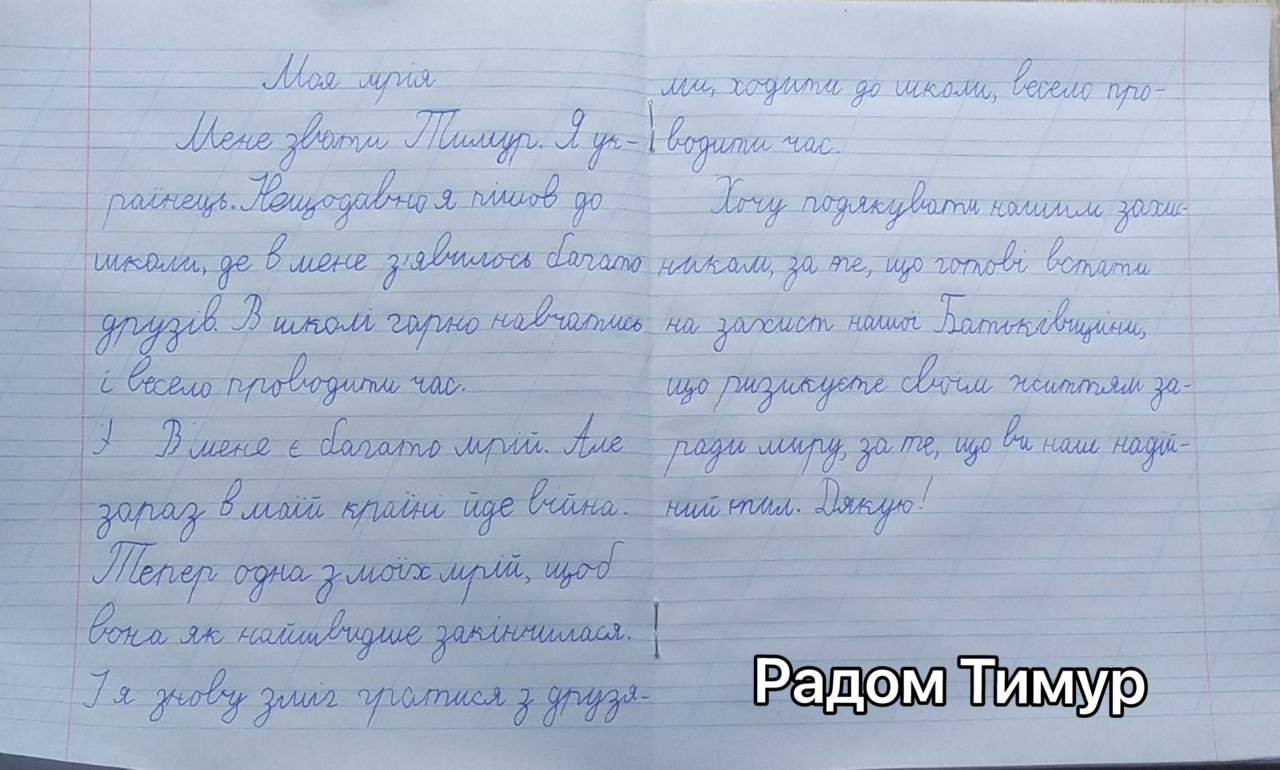 Моя мрія
Мене звати Тимур. Я ук-
раїнець. Нещодавно я пішов до
школи, де в мене з'явилось багато
друзів. В школі гарно навчатись
і весело проводити час.
В мене є багато мрій. Але
зараз в моїй країні йде війна.
Тепер одна з моїх мрій, щоб
вона як найшвидше закінчилася.
І я знову зміг гратися з друзя-
ми, ходити до школи, весело про-
водити час.
Хочу подякувати нашим захис-
никам, за те, що готові встати
на захист нашої Батьківщини,
що ризикуєте своїм життям за-
ради миру, за те, що ви наш надій-
ний тил. Дякую!
Радом Тимур